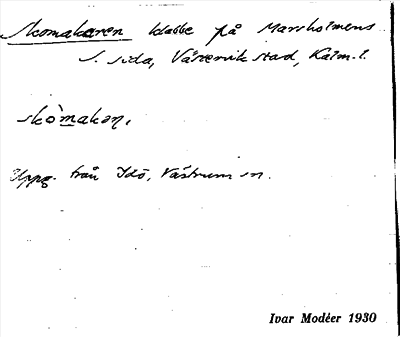 Skomakaren klabbe på Marsholmens
S. sida, Västervik stad, Kalm. l.
skòmakaṇ.
Uppg. från Idö, Västrum sn.
Ivar Modéer 1930